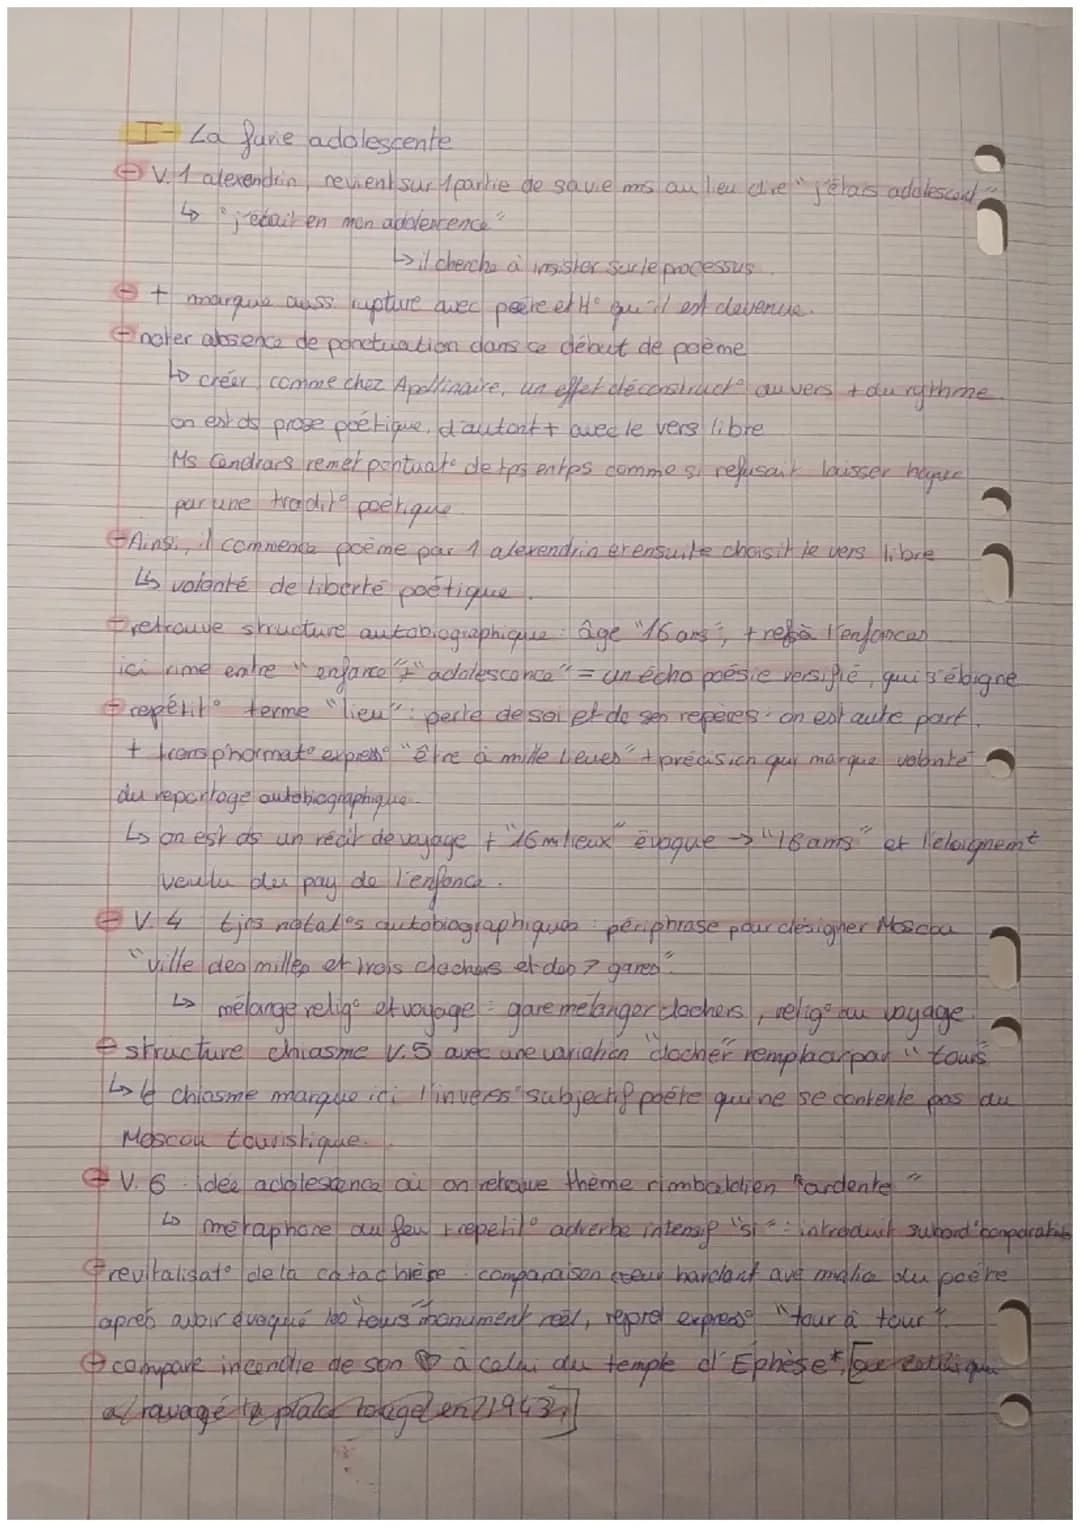 I- La furie adolescente
- V.1 alexendrin, revient sur 1 partie de sa vie ms au lieu dire "j'étais adolescent"
↳ "j'était en mon adolescence"
↳ il cherche à insister sur le processus
- + marque auss rupture avec poète et H° qu'il est devenue.
- noter absence de ponctuation dans ce début de poème
↳ créer, comme chez Apollinaire, un effet déconstruct° au vers + du rythme
on est ds prose poétique, d'autant + avec le vers libre
Ms Cendrars remet pontuat° de tps en tps comme si refusait laisser
par une tradit° poétique
- Ainsi, il commence poème par 1 alexendrin et ensuite choisit le vers libre
↳ volonté de liberté poétique.
- retrouve structure autobiographique : âge "16 ans", + ref à l'enfances
ici rime entre "enfance" + "adolescence" = un écho poésie versifié, qui s'éloigne
- repétit° terme "lieu" : perte de soi et de sen repères : on est autre part.
+ transphormat° express° "être à mille lieues" + précisich qui marque volonté
du reportage autobiographique.
↳ on est ds un récit de voyage + "16 m lieux" évoque → "16 ans" et l'éloignemt
voulu du pay de l'enfance.
- V. 4 : tjrs notat°s autobiographiques : périphrase pour désigner Moscou
"ville des milles et trois clochers et des 7 gares".
↳ mélange relig° et voyage : gare mélanger clochers, relig° au voyage.
- structure chiasme V.5 avec une variation "clocher" remplacar par "tours"
↳ le chiasme marque ici l'invers° subjectif poète qui ne se contente pas du
Moscou touristique.
- V. 6 : idée adolescence où on retrouve thème rimbaldien "ardente"
↳ métaphore du feu + repétit° adverbe intensif "si" : introduit subord° comparative
- revitalisat° de la catachrèse : comparaison cœur
après avoir évoqué les "tours" monument réel, reprd express° "tour à tour".
- compare incendie de son ♡ à celui du temple d'Ephèse*, [
a ravagé la place rouge en 1943]